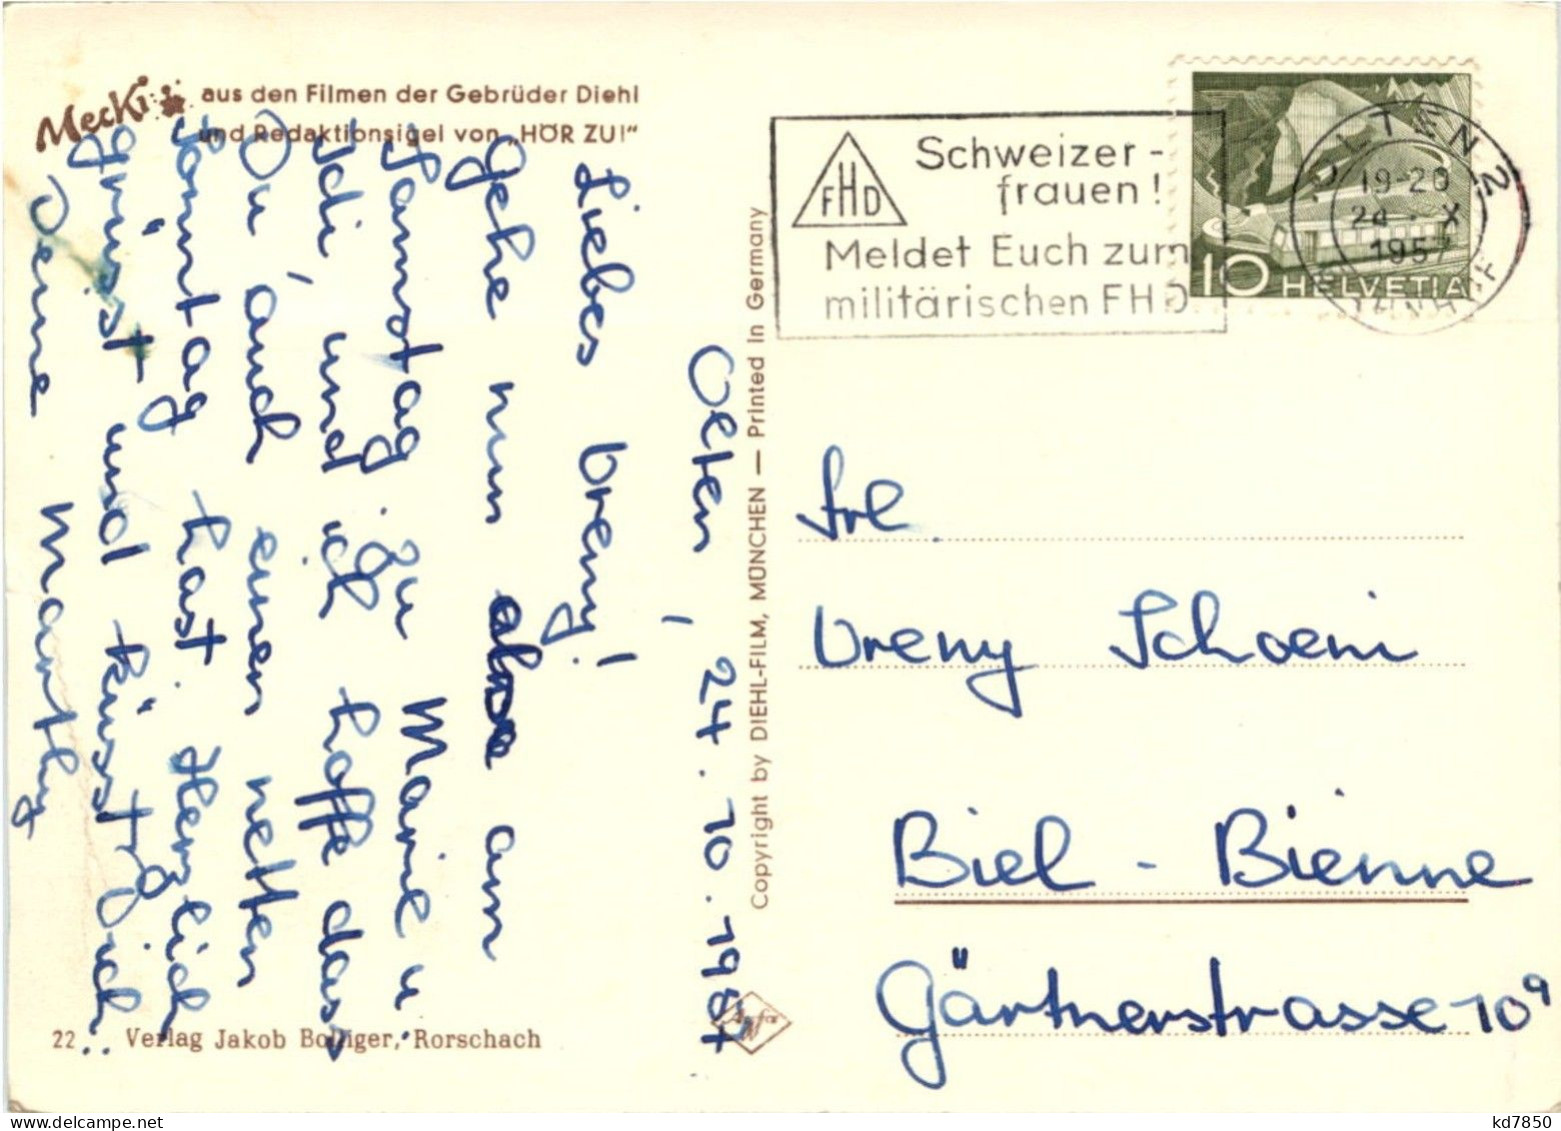 Mecki aus den Filmen der Gebrüder Diehl
und Redaktionsigel von „HÖR ZU!"
Olten, 24.10.1957
Liebes Vreny!
Gehe nun also am
Samstag zu Marie u.
Idi, und ich hoffe dass
Du auch einen netten
Sonntag hast. Herzlich
grüsst und küsst Dich..
Deine Marthy
22 Verlag Jakob Bolliger, Rorschach
Copyright by DIEHL-FILM, MÜNCHEN — Printed in Germany
FHD
Schweizer-
frauen!
Meldet Euch zum
militärischen FHD
OLTEN 2
19-20
24. X
1957
BAHNHOF
10 HELVETIA
Frl.
Vreny Schoeni
Biel - Bienne
Gärtnerstrasse 10a
kd7850